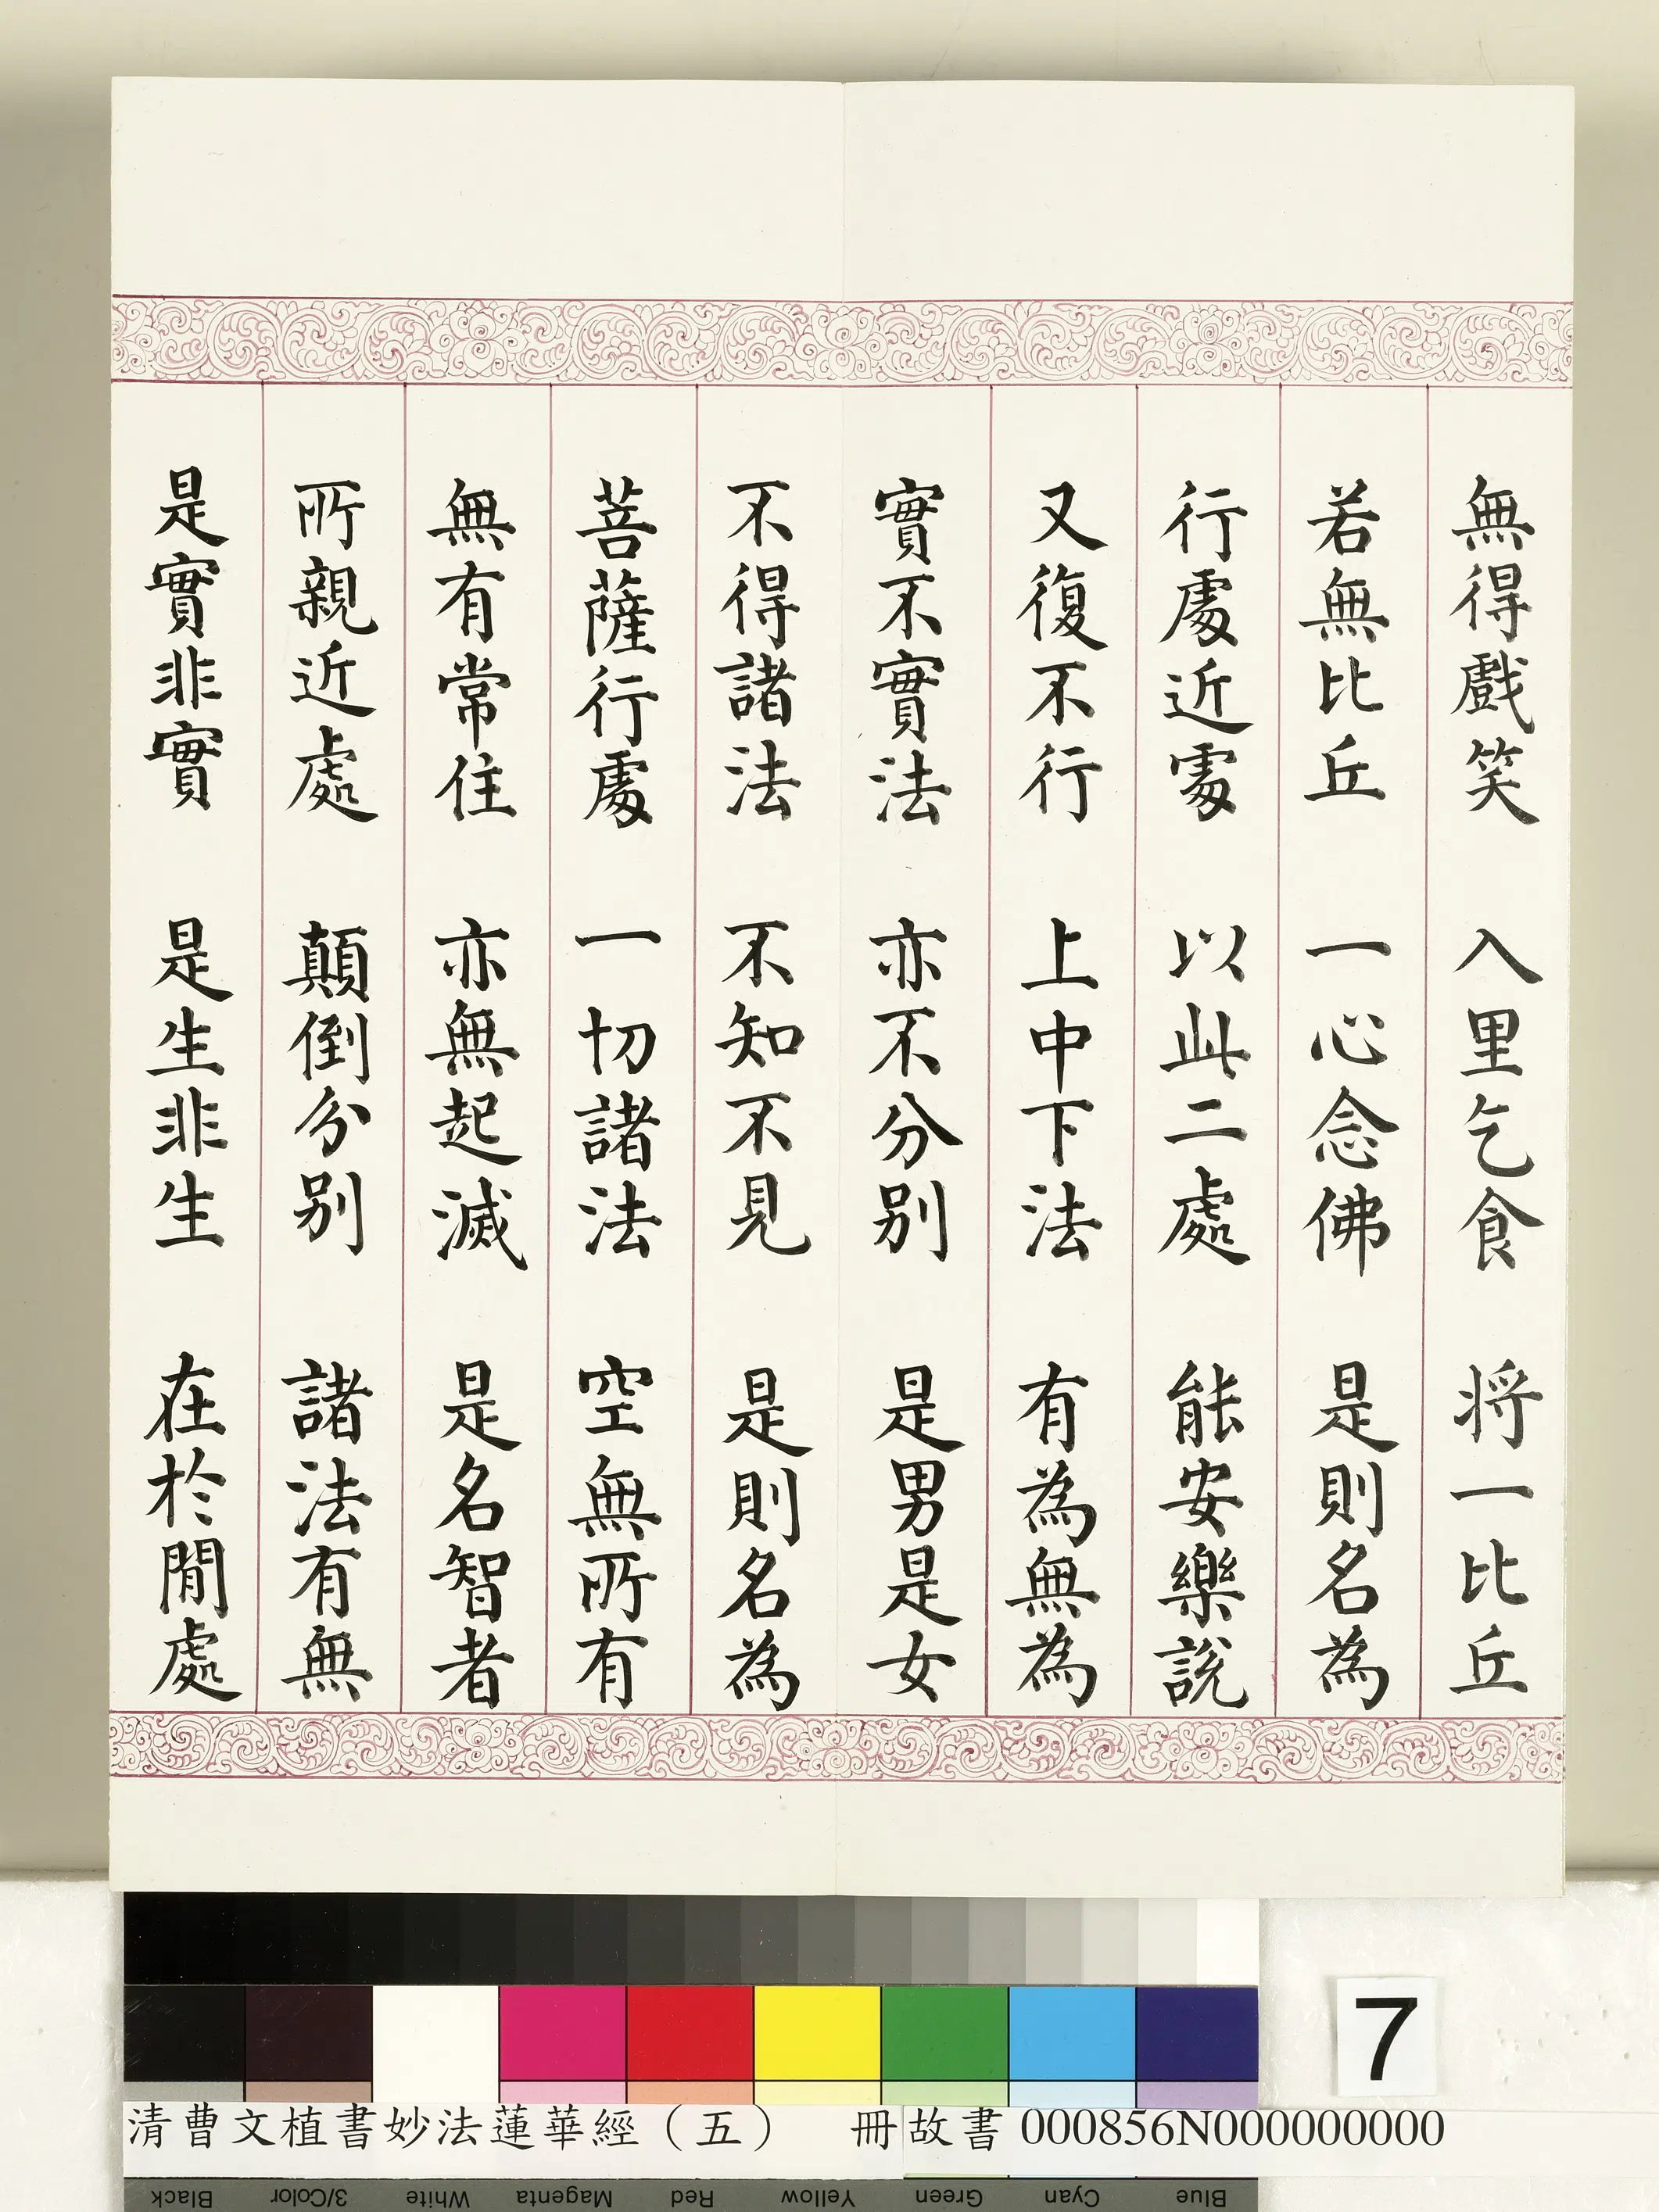 無得戲笑 入里乞食 将一比丘
若無比丘 一心念佛 是則名為
行處近處 以此二處 能安樂說
又復不行 上中下法 有為無為
實不實法 亦不分別 是男是女
不得諸法 不知不見 是則名為
菩薩行處 一切諸法 空無所有
無有常住 亦無起滅 是名智者
所親近處 顛倒分別 諸法有無
是實非實 是生非生 在於閒處
7
清曹文植書妙法蓮華經（五） 冊 故書 000856N000000000
Black 3/Color White Magenta Red Yellow Green Cyan Blue